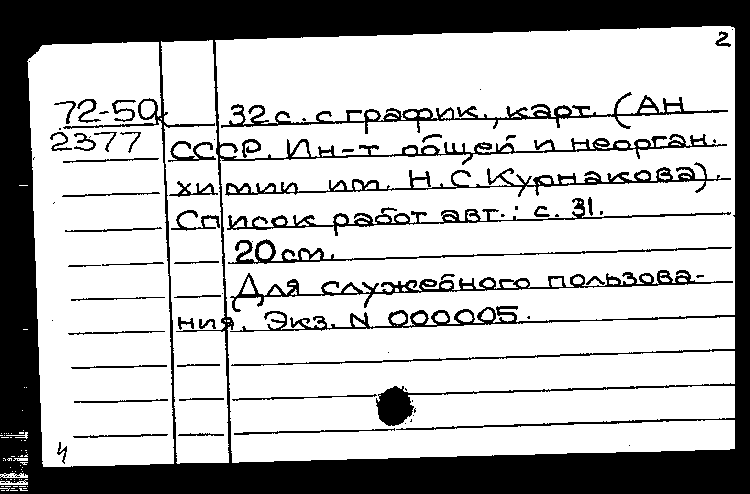 2
72-50к 32 с. с график., карт. (АН
2377 СССР. Ин-т общей и неорган.
химии им. Н.С. Курнакова).
Список работ авт.: с. 31.
20 см.
Для служебного пользова-
ния. Экз. N 000005.